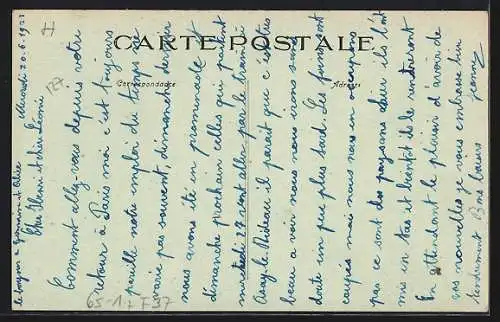 CARTE POSTALE
Correspondance
Adresse
Mercredi 20.6.1923
Cher Pierre et chère Léonie
Comment allez vous depuis votre
retour à Paris moi c'est toujours
pareille notre emploi du temps ne
varie pas souvent, dimanche dernier
nous avons été en promenade et
dimanche prochain celles qui partent
mercredi 27 vont aller par le tramway
Azay-le-Rideau il paraît que c'est très
beau a voir nous nous irons sans
doute un peu plus tard. Les foins sont
coupés mais nous nous en occupons
pas ce sont des paysans d'ici ils l'ont
mis en tas et bientôt ils le rentreront
En attendant le plaisir d'avoir de
vos nouvelles je vous embrasse bien
tendrement Bons baisers
Jeanne
le bonjour à Germaine et Alice
65-1 F37